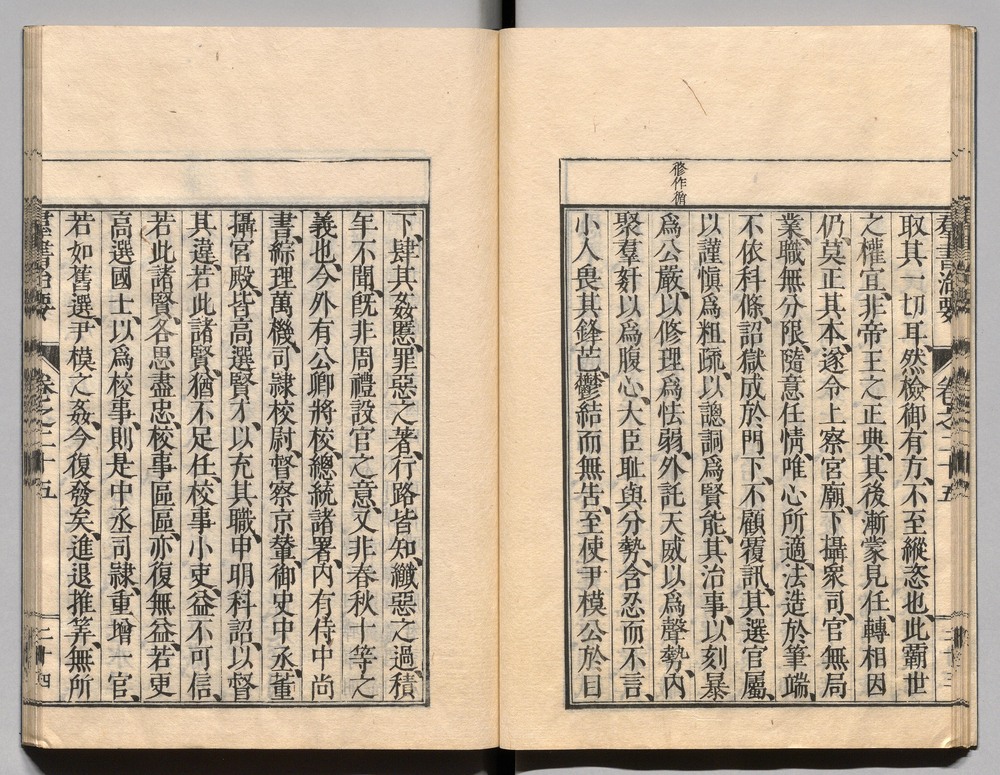 羣書治要 卷之二十五 二十三
修作循
取其一切耳、然檢御有方、不至縱恣也、此霸世
之權宜、非帝王之正典、其後漸蒙見任、轉相因
仍、莫正其本、遂令上察宮廟、下攝衆司、官無局
業、職無分限、隨意任情、唯心所適、法造於筆端、
不依科條、詔獄成於門下、不顧覆訊、其選官屬、
以謹愼爲粗疏、以謥詷爲賢能、其治事、以刻暴
爲公嚴、以修理爲怯弱、外託天威以爲聲勢、內
聚羣奸以爲腹心、大臣耻與分勢、含忍而不言、
小人畏其鋒芒、鬱結而無告、至使尹模公於目
下、肆其姦慝、罪惡之著、行路皆知、纖惡之過、積
年不聞、旣非周禮設官之意、又非春秋十等之
義也、今外有公卿將校、總統諸署、內有侍中尚
書、綜理萬機、司隷校尉、督察京輦、御史中丞、董
攝宮殿、皆高選賢才、以充其職、申明科詔、以督
其違、若此諸賢、猶不足任、校事小吏、益不可信、
若此諸賢、各思盡忠、校事區區、亦復無益、若更
高選國士、以爲校事、則是中丞司隷、重增一官、
若如舊選、尹模之姦、今復發矣、進退推筭、無所
羣書治要 卷之二十五 二十四